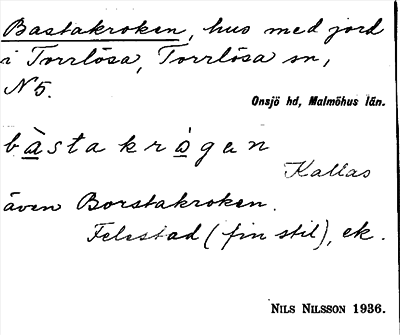 Bastakroken, hus med jord
i Torrlösa, Torrlösa sn,
N 5.
Onsjö hd, Malmöhus län.
bàstakrȧgen
Kallas
även Borstakroken.
Felestad (fin stil), ek.
NILS NILSSON 1936.